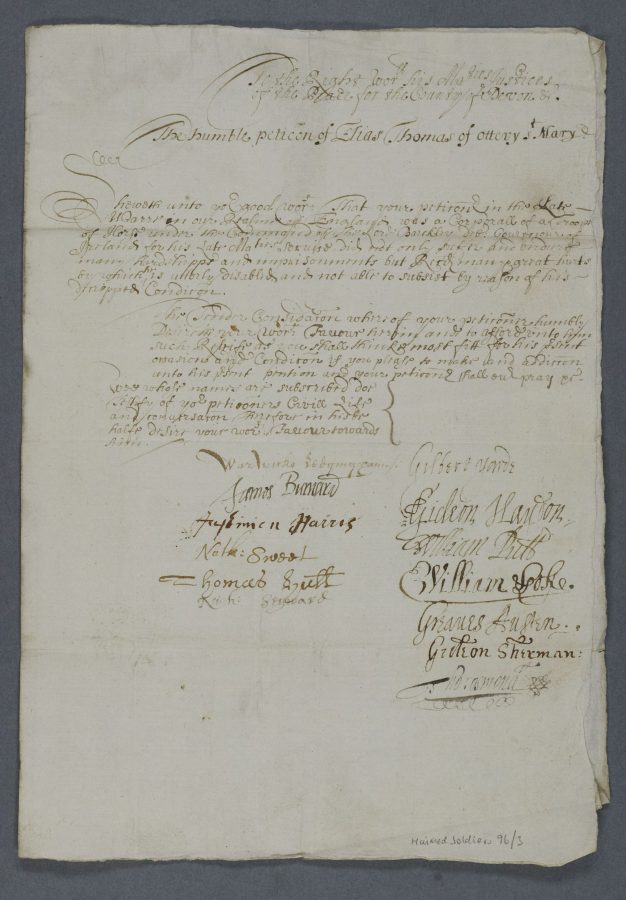 To the Right Worll his Maties Justices
of the Peace for the County of Devon &c
The humble peticon of Elias Thomas of Ottery St Mary
Sheweth unto yor good worrs That your peticonr in the Late
Warrs in our Realme of England was a Corporall of a Troope
of Horse under the Command of the Lord
Ireland for his Late Maties Service did not only suffer and endure
many hardshipps and imprisonments but Rec many great hurts
by which is utterly disabled and not able to subsist by reason of his
Condicon
The Tender Consideracon wherof your peticoner humbly
your worrs Favour herein and to afford unto him
such Reliefe as you shall thinke most fitt for his psent
occasions and Condicon if you please to make and addicion
unto his psent pention and your peticonr shall ever pray &c
Wee whose names are subscribed doe
of your peticoners Civill Life
and conversacon therefore in his be
halfe desire your worrs Favour towards
him
Gilbert Yarde
James Burnard
Gideon
Justinien Harris
William Pitt
Nath: Sweet
William Cooke.
Thomas
Rich: Shepard
Greaves Austen
Gideon Sherman:
Maimed Soldiers 96/3